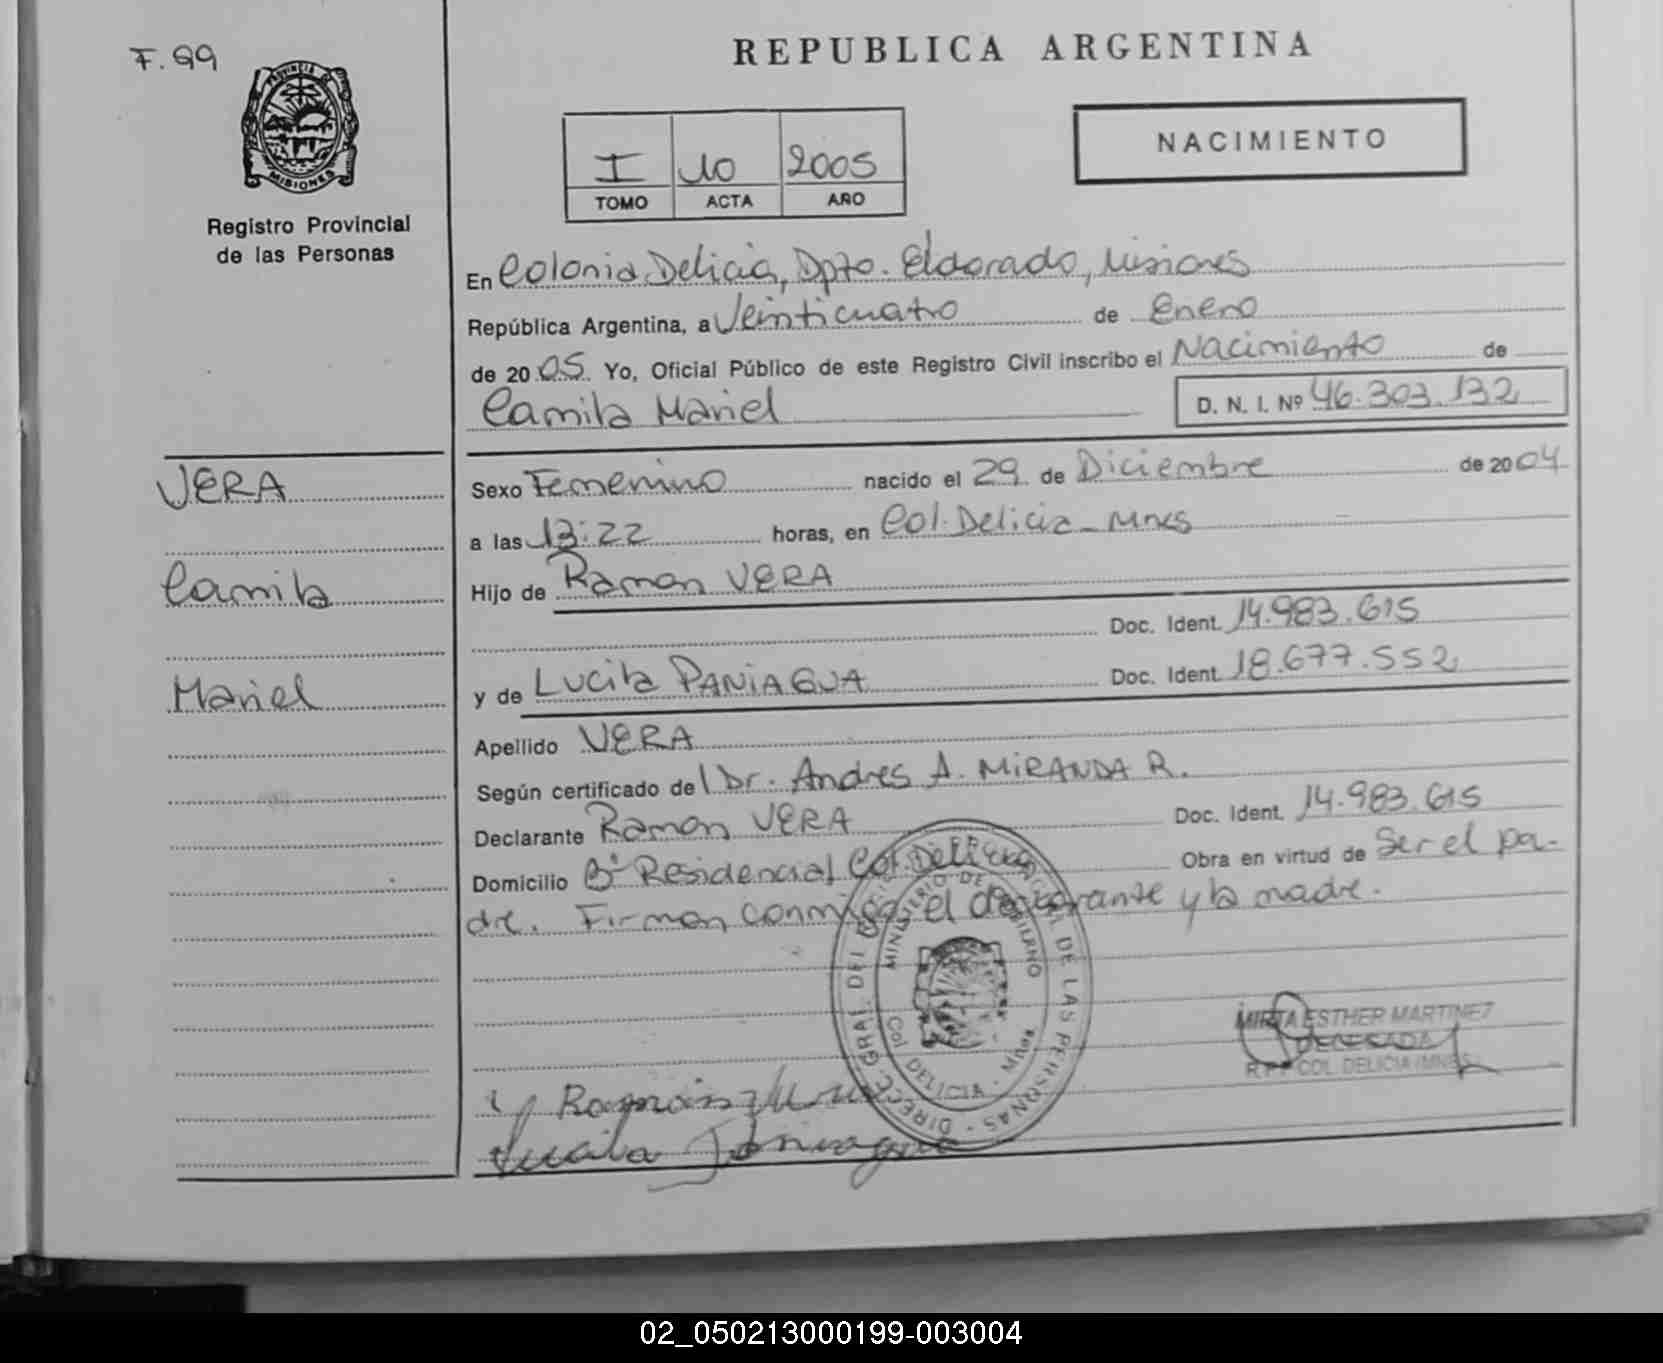 F. 99
PROVINCIA DE
MISIONES
Registro Provincial
de las Personas
REPUBLICA ARGENTINA
I 10 2005
TOMO ACTA AÑO
NACIMIENTO
En Colonia Delicia, Dpto. Eldorado, Misiones
República Argentina, a Veinticuatro de Enero
de 20 05 Yo, Oficial Público de este Registro Civil inscribo el Nacimiento de
Camila Mariel D. N. I. Nº 46.303.132
VERA
Camila
Mariel
Sexo Femenino nacido el 29 de Diciembre de 20 04
a las 13:22 horas, en Col. Delicia - Mnes
Hijo de Ramon VERA
Doc. Ident. 14.983.615
y de Lucila PANIAGUA Doc. Ident. 18.677.552
Apellido VERA
Según certificado del Dr. Andres A. MIRANDA R.
Declarante Ramon VERA Doc. Ident. 14.983.615
Domicilio Bº Residencial Col. Delicia Obra en virtud de Ser el pa-
dre. Firman conmigo el declarante y la madre.
DIRECC. GRAL. DEL DE LAS PERSONAS
MINISTERIO DE GOBIERNO
Col. DELICIA - Mnes
MIRTA ESTHER MARTINEZ
DELEGADA
R.P.P COL. DELICIA (MNES)
Ramón
Lucila Paniagua
02_050213000199-003004